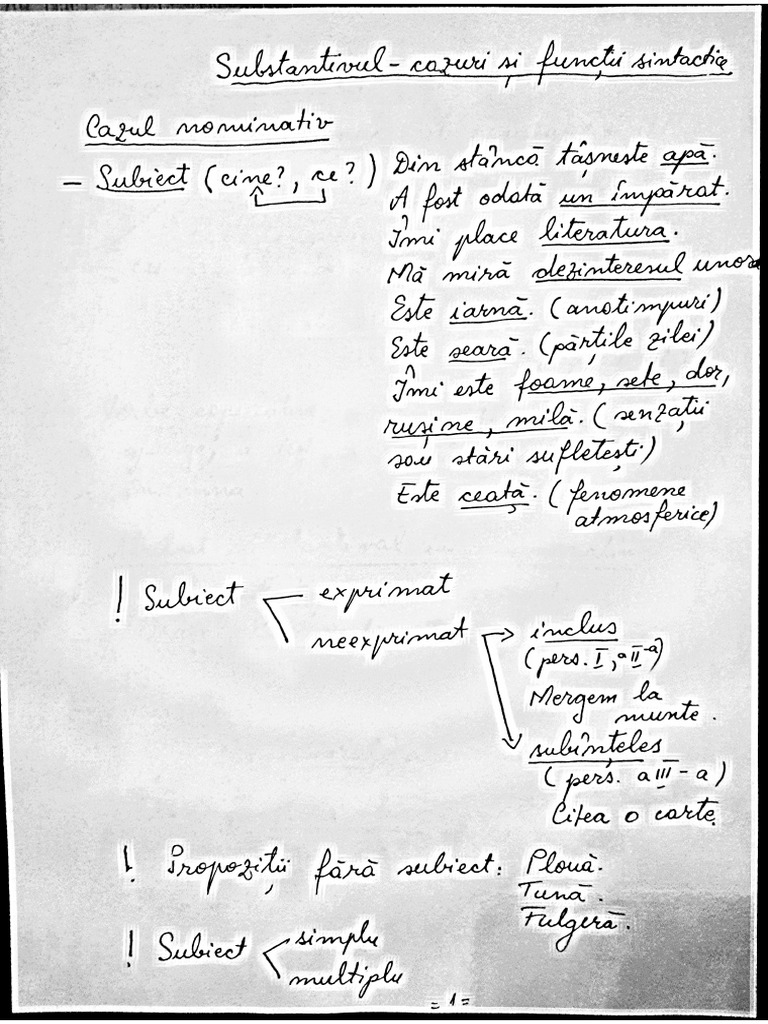 Substantivul - cazuri și funcții sintactice
Cazul nominativ
- Subiect (cine?, ce?) Din stâncă țâșnește apă.
A fost odată un împărat.
Îmi place literatura.
Mă miră dezinteresul unora
Este iarnă. (anotimpuri)
Este seară. (părțile zilei)
Îmi este foame, sete, dor,
rușine, milă. (senzații
sau stări sufletești)
Este ceață. (fenomene
atmosferice)
! Subiect exprimat
neexprimat → inclus
(pers. I, a II-a)
Mergem la
munte.
subînțeles
(pers. a III-a)
Citea o carte.
! Propoziții fără subiect: Plouă.
Tună.
Fulgeră.
! Subiect simplu
multiplu
= 1 =